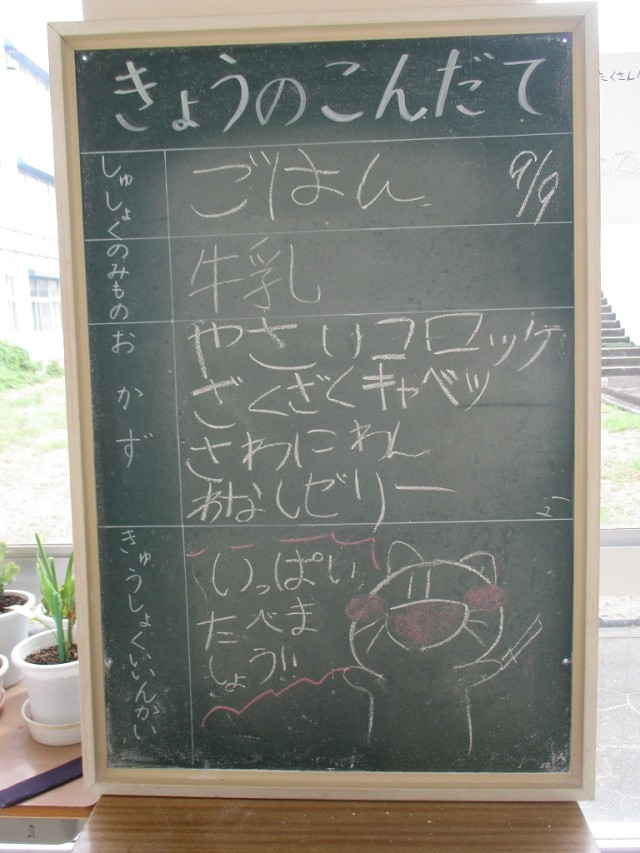 きょうのこんだて
しゅしょく
ごはん
9/9
のみもの
牛乳
おかず
やさいコロッケ
ざくざくキャベツ
さわにわん
わなしゼリー
きゅうしょくいいんかい
いっぱい
たべま
しょう!!
たくさん